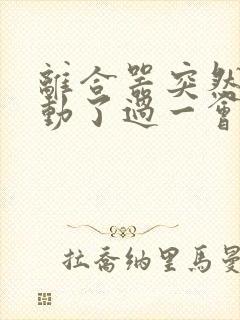 離合器突然
動了過一會
拉喬納里馬曼